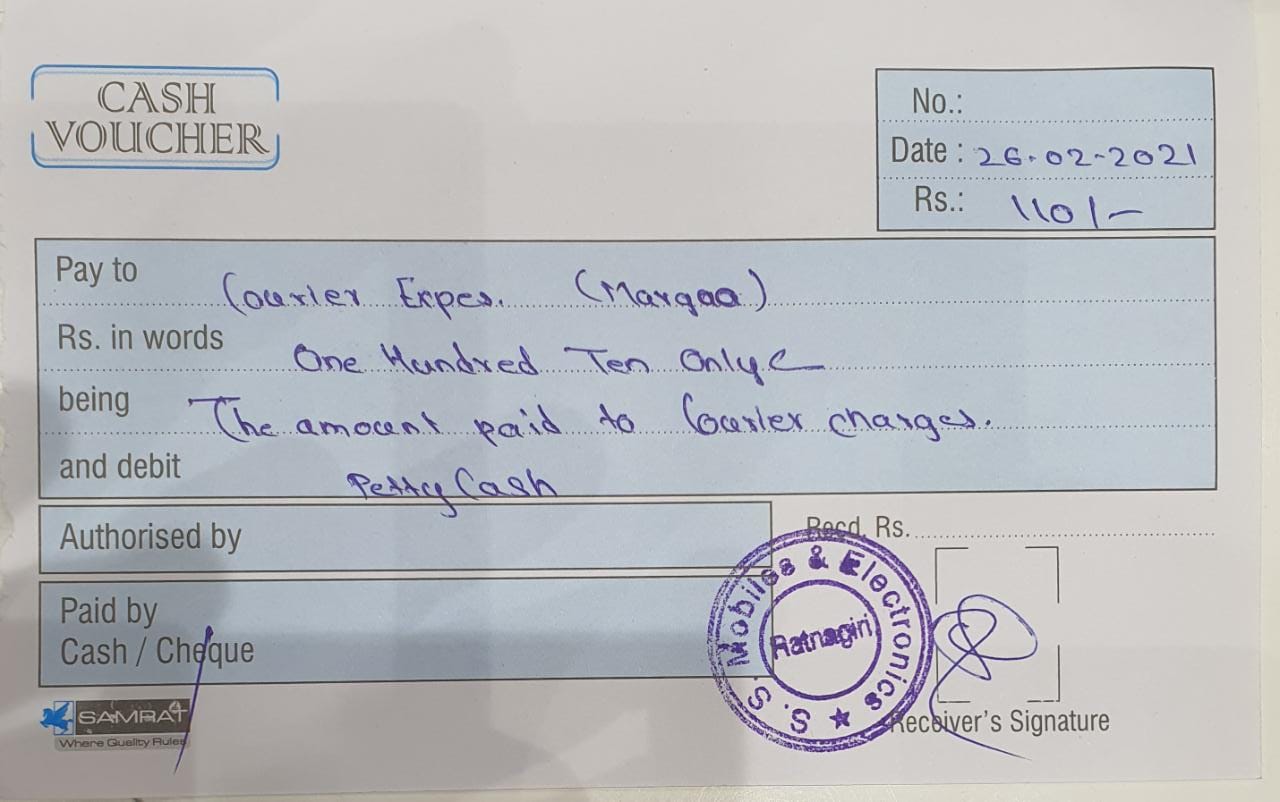 CASH
VOUCHER
No.:
Date : 26-02-2021
Rs.: 110/-
Pay to Courier Expes. (Margaa)
Rs. in words One Hundred Ten Only
being The amount paid to Courier charges.
and debit Petty Cash
Authorised by
Recd. Rs.
Paid by
Cash / Cheque
S. S. Mobiles & Electronics
Ratnagiri
SAMRAT
Where Quality Rules
Receiver's Signature